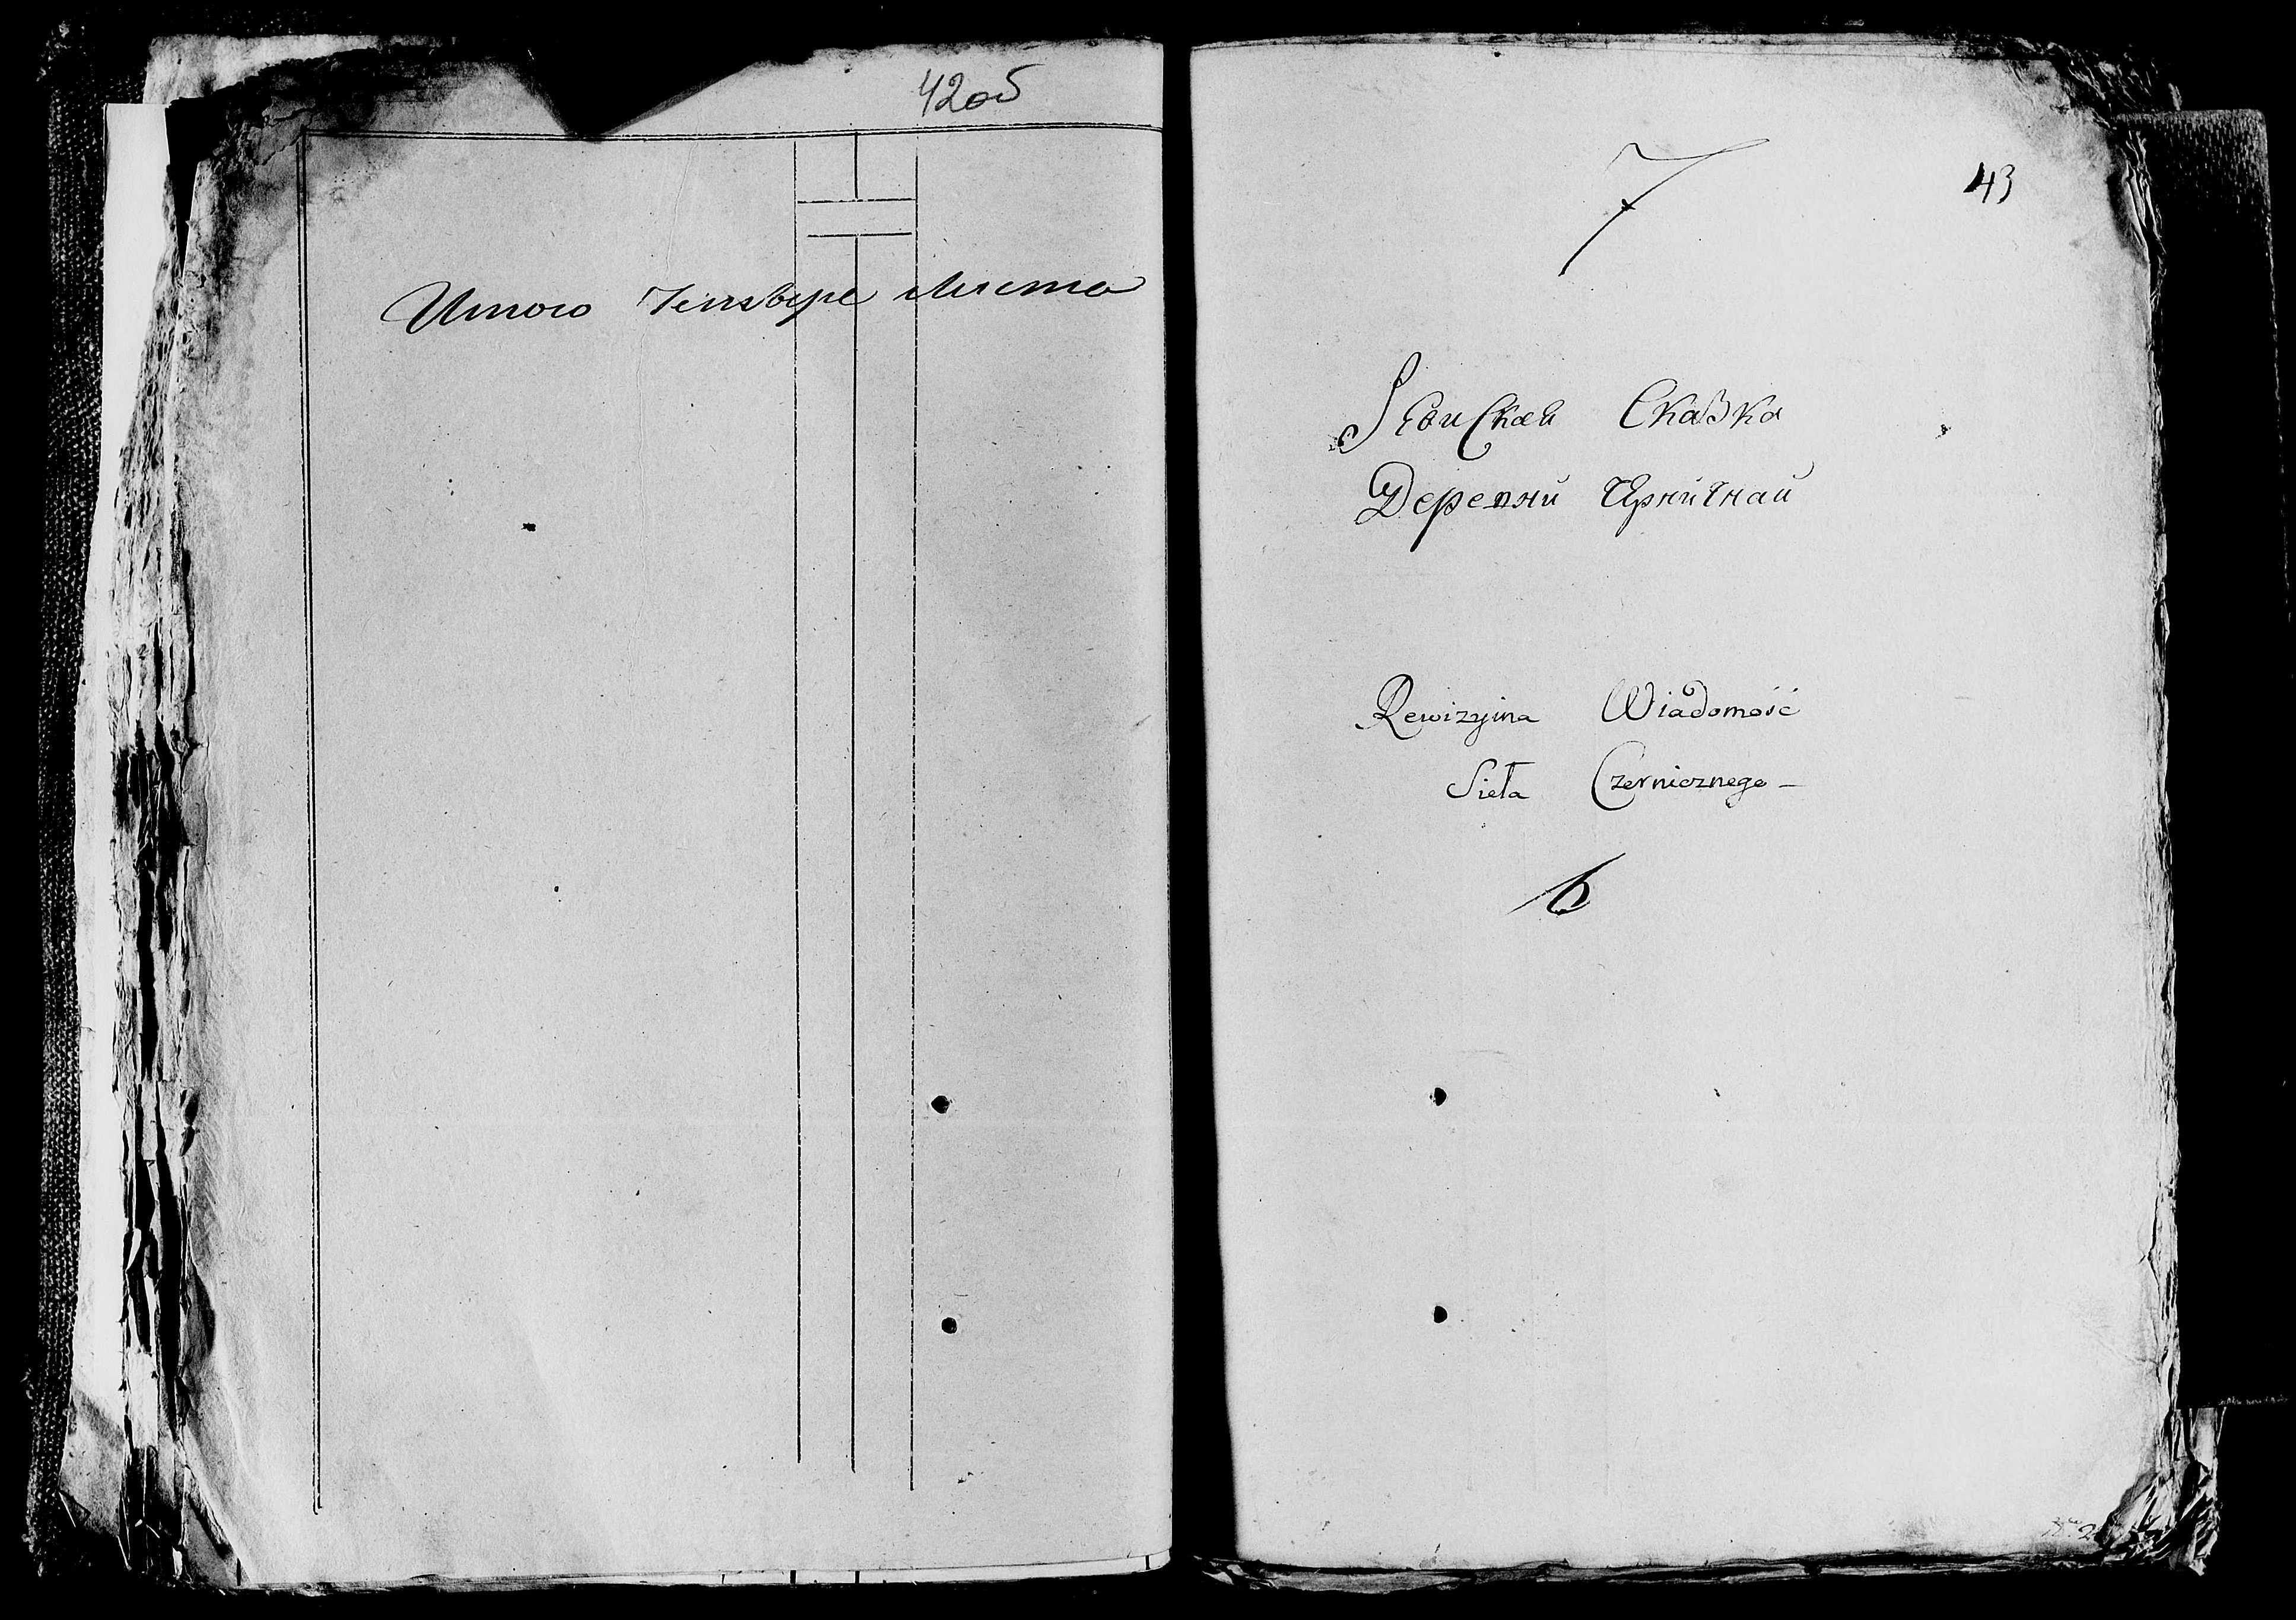 42об
Итого Четыре листа
7
43
Ревискаи Сказка
Деревни Чрничнаи
Rewizyina Wiadomość
Sieła Czernicznego –
6